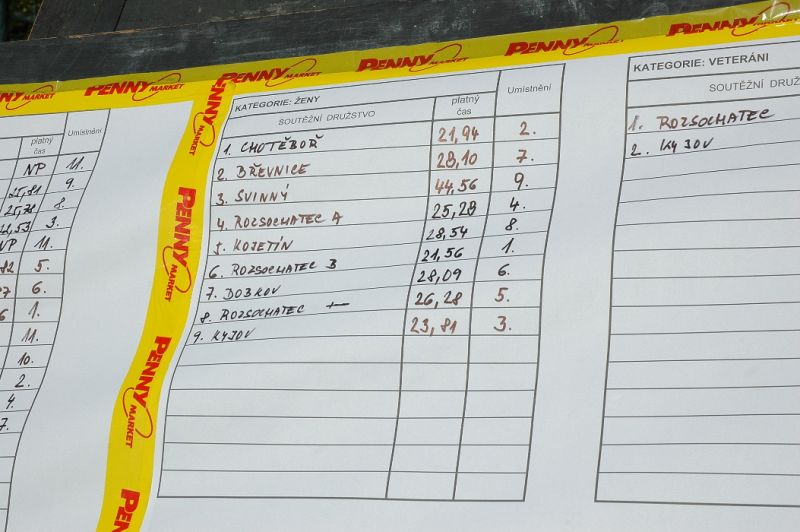 PENNY MARKET
PENNY MARKET
PENNY MARKET
PENNY MARKET
PENNY MARKET
PENNY MARKET
platný čas Umístnění
NP 11.
25,81 9.
8.
3.
NP 11.
5.
6.
1.
11.
10.
2.
4.
7.
PENNY MARKET
PENNY MARKET
PENNY MARKET
PENNY
KATEGORIE: ŽENY
SOUTĚŽNÍ DRUŽSTVO platný čas Umístnění
1. CHOTĚBOŘ 21,94 2.
2. BŘEVNICE 28,10 7.
3. SVINNÝ 44,56 9.
4. ROZSOCHATEC A 25,28 4.
5. KOJETÍN 28,54 8.
6. ROZSOCHATEC B 21,56 1.
7. DOBKOV 28,09 6.
8. ROZSOCHATEC 26,28 5.
9. KYJOV 23,81 3.
KATEGORIE: VETERÁNI
SOUTĚŽNÍ DRUŽ
1. ROZSOCHATEC
2. KYJOV